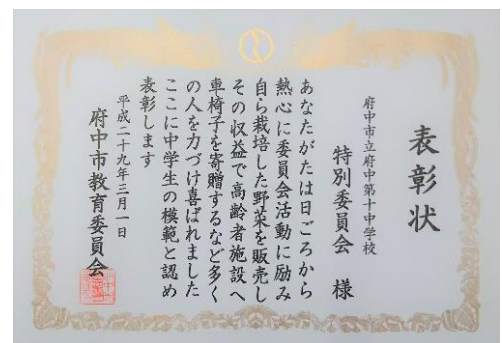 表彰状
府中市立府中第十中学校
特別委員会 様
あなたがたは日ごろから
熱心に委員会活動に励み
自ら栽培した野菜を販売し
その収益で高齢者施設へ
車椅子を寄贈するなど多く
の人を力づけ喜ばれました
ここに中学生の模範と認め
表彰します
平成二十九年三月一日
府中市教育委員会